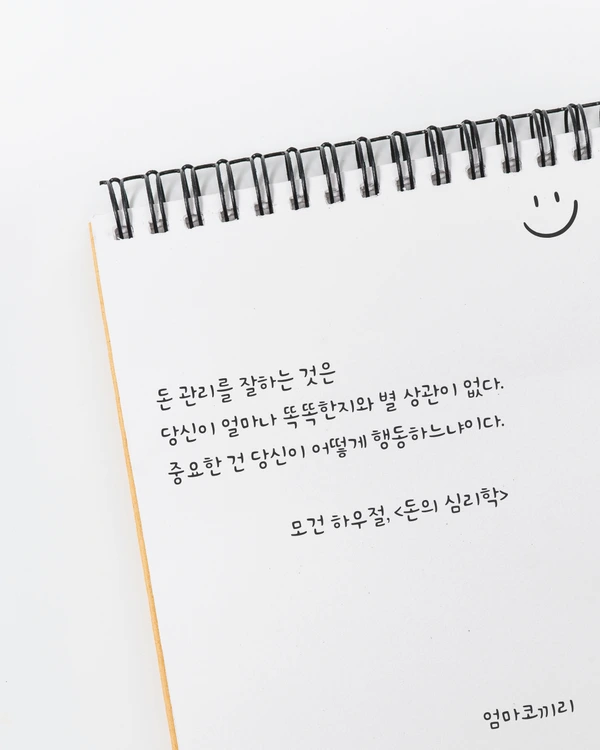 돈 관리를 잘하는 것은
당신이 얼마나 똑똑한지와 별 상관이 없다.
중요한 건 당신이 어떻게 행동하느냐이다.
모건 하우절, <돈의 심리학>
엄마코끼리